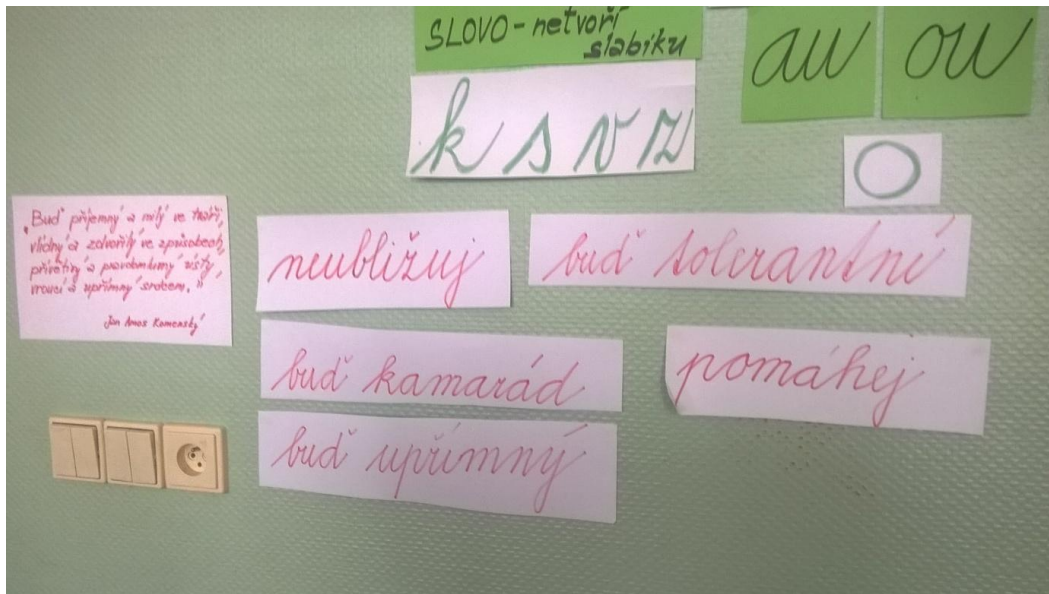 SLOVO - netvoří
slabiku
au
ou
k s v z
O
„Buď příjemný a milý ve tváři,
vlídný a zdvořilý ve způsobech,
přívětivý a pravdomluvný ústy,
vroucí a upřímný srdcem."
Jan Amos Komenský
neubližuj
buď tolerantní
buď kamarád
pomáhej
buď upřímný